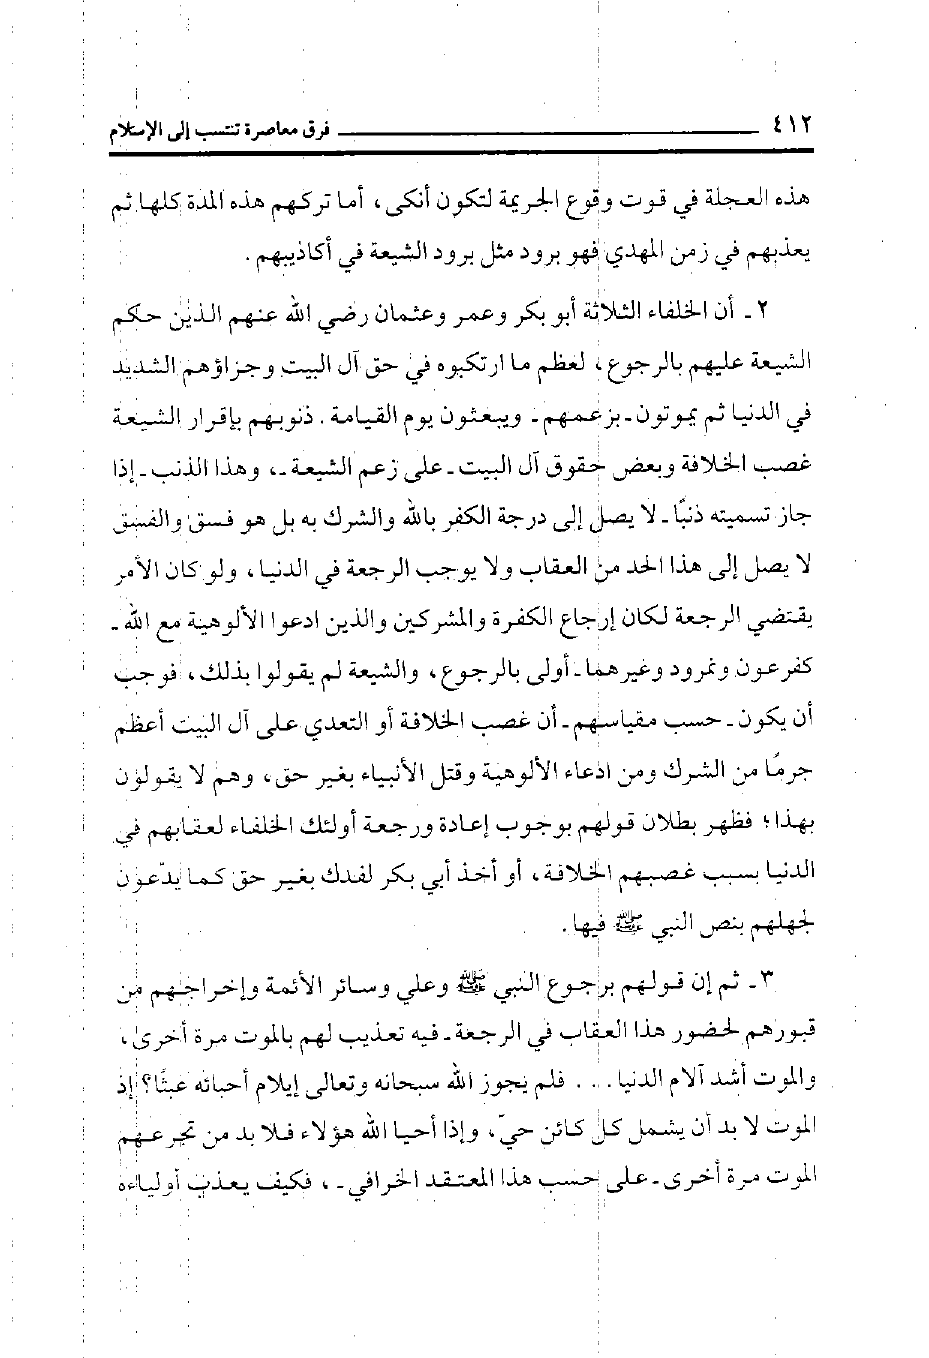 ٤١٢ فرق معاصرة تنتسب إلى الإسلام
هذه العجلة في قوت وقوع الجريمة لتكون أنكى، أما تركهم هذه المدة كلها ثم
يعذبهم في زمن المهدي فهو برود مثل برود الشيعة في أكاذيبهم.
٢ـ أن الخلفاء الثلاثة أبو بكر وعمر وعثمان رضي الله عنهم الذين حكم
الشيعة عليهم بالرجوع، لعظم ما ارتكبوه في حق آل البيت وجزاؤهم الشديد
في الدنيا ثم يموتون ـ بزعمهم ـ ويبعثون يوم القيامة. ذنوبهم بإقرار الشيعة
غصب الخلافة وبعض حقوق آل البيت ـ على زعم الشيعة ـ، وهذا الذنب ـ إذا
جاز تسميته ذنبًا ـ لا يصل إلى درجة الكفر بالله والشرك به بل هو فسق والفسق
لا يصل إلى هذا الحد من العقاب ولا يوجب الرجعة في الدنيا، ولو كان الأمر
يقتضي الرجعة لكان إرجاع الكفرة والمشركين والذين ادعوا الألوهية مع الله ـ
كفرعون ونمرود وغيرهما ـ أولى بالرجوع، والشيعة لم يقولوا بذلك، فوجب
أن يكون ـ حسب مقياسهم ـ أن غصب الخلافة أو التعدي على آل البيت أعظم
جرمًا من الشرك ومن ادعاء الألوهية وقتل الأنبياء بغير حق، وهم لا يقولون
بهذا؛ فظهر بطلان قولهم بوجوب إعادة ورجعة أولئك الخلفاء لعقابهم في
الدنيا بسبب غصبهم الخلافة، أو أخذ أبي بكر لفدك بغير حق كما يدّعون
لجهلهم بنص النبي ﷺ فيها.
٣ـ ثم إن قولهم برجوع النبي ﷺ وعلي وسائر الأئمة وإخراجهم من
قبورهم لحضور هذا العقاب في الرجعة ـ فيه تعذيب لهم بالموت مرة أخرى،
والموت أشد آلام الدنيا.... فلم يجوز الله سبحانه وتعالى إيلام أحبائه عبثًا؟ إذ
الموت لا بد أن يشمل كل كائن حيّ، وإذا أحيا الله هؤلاء فلا بد من تجرعهم
الموت مرة أخرى ـ على حسب هذا المعتقد الخرافي ـ، فكيف يعذب أولياءه